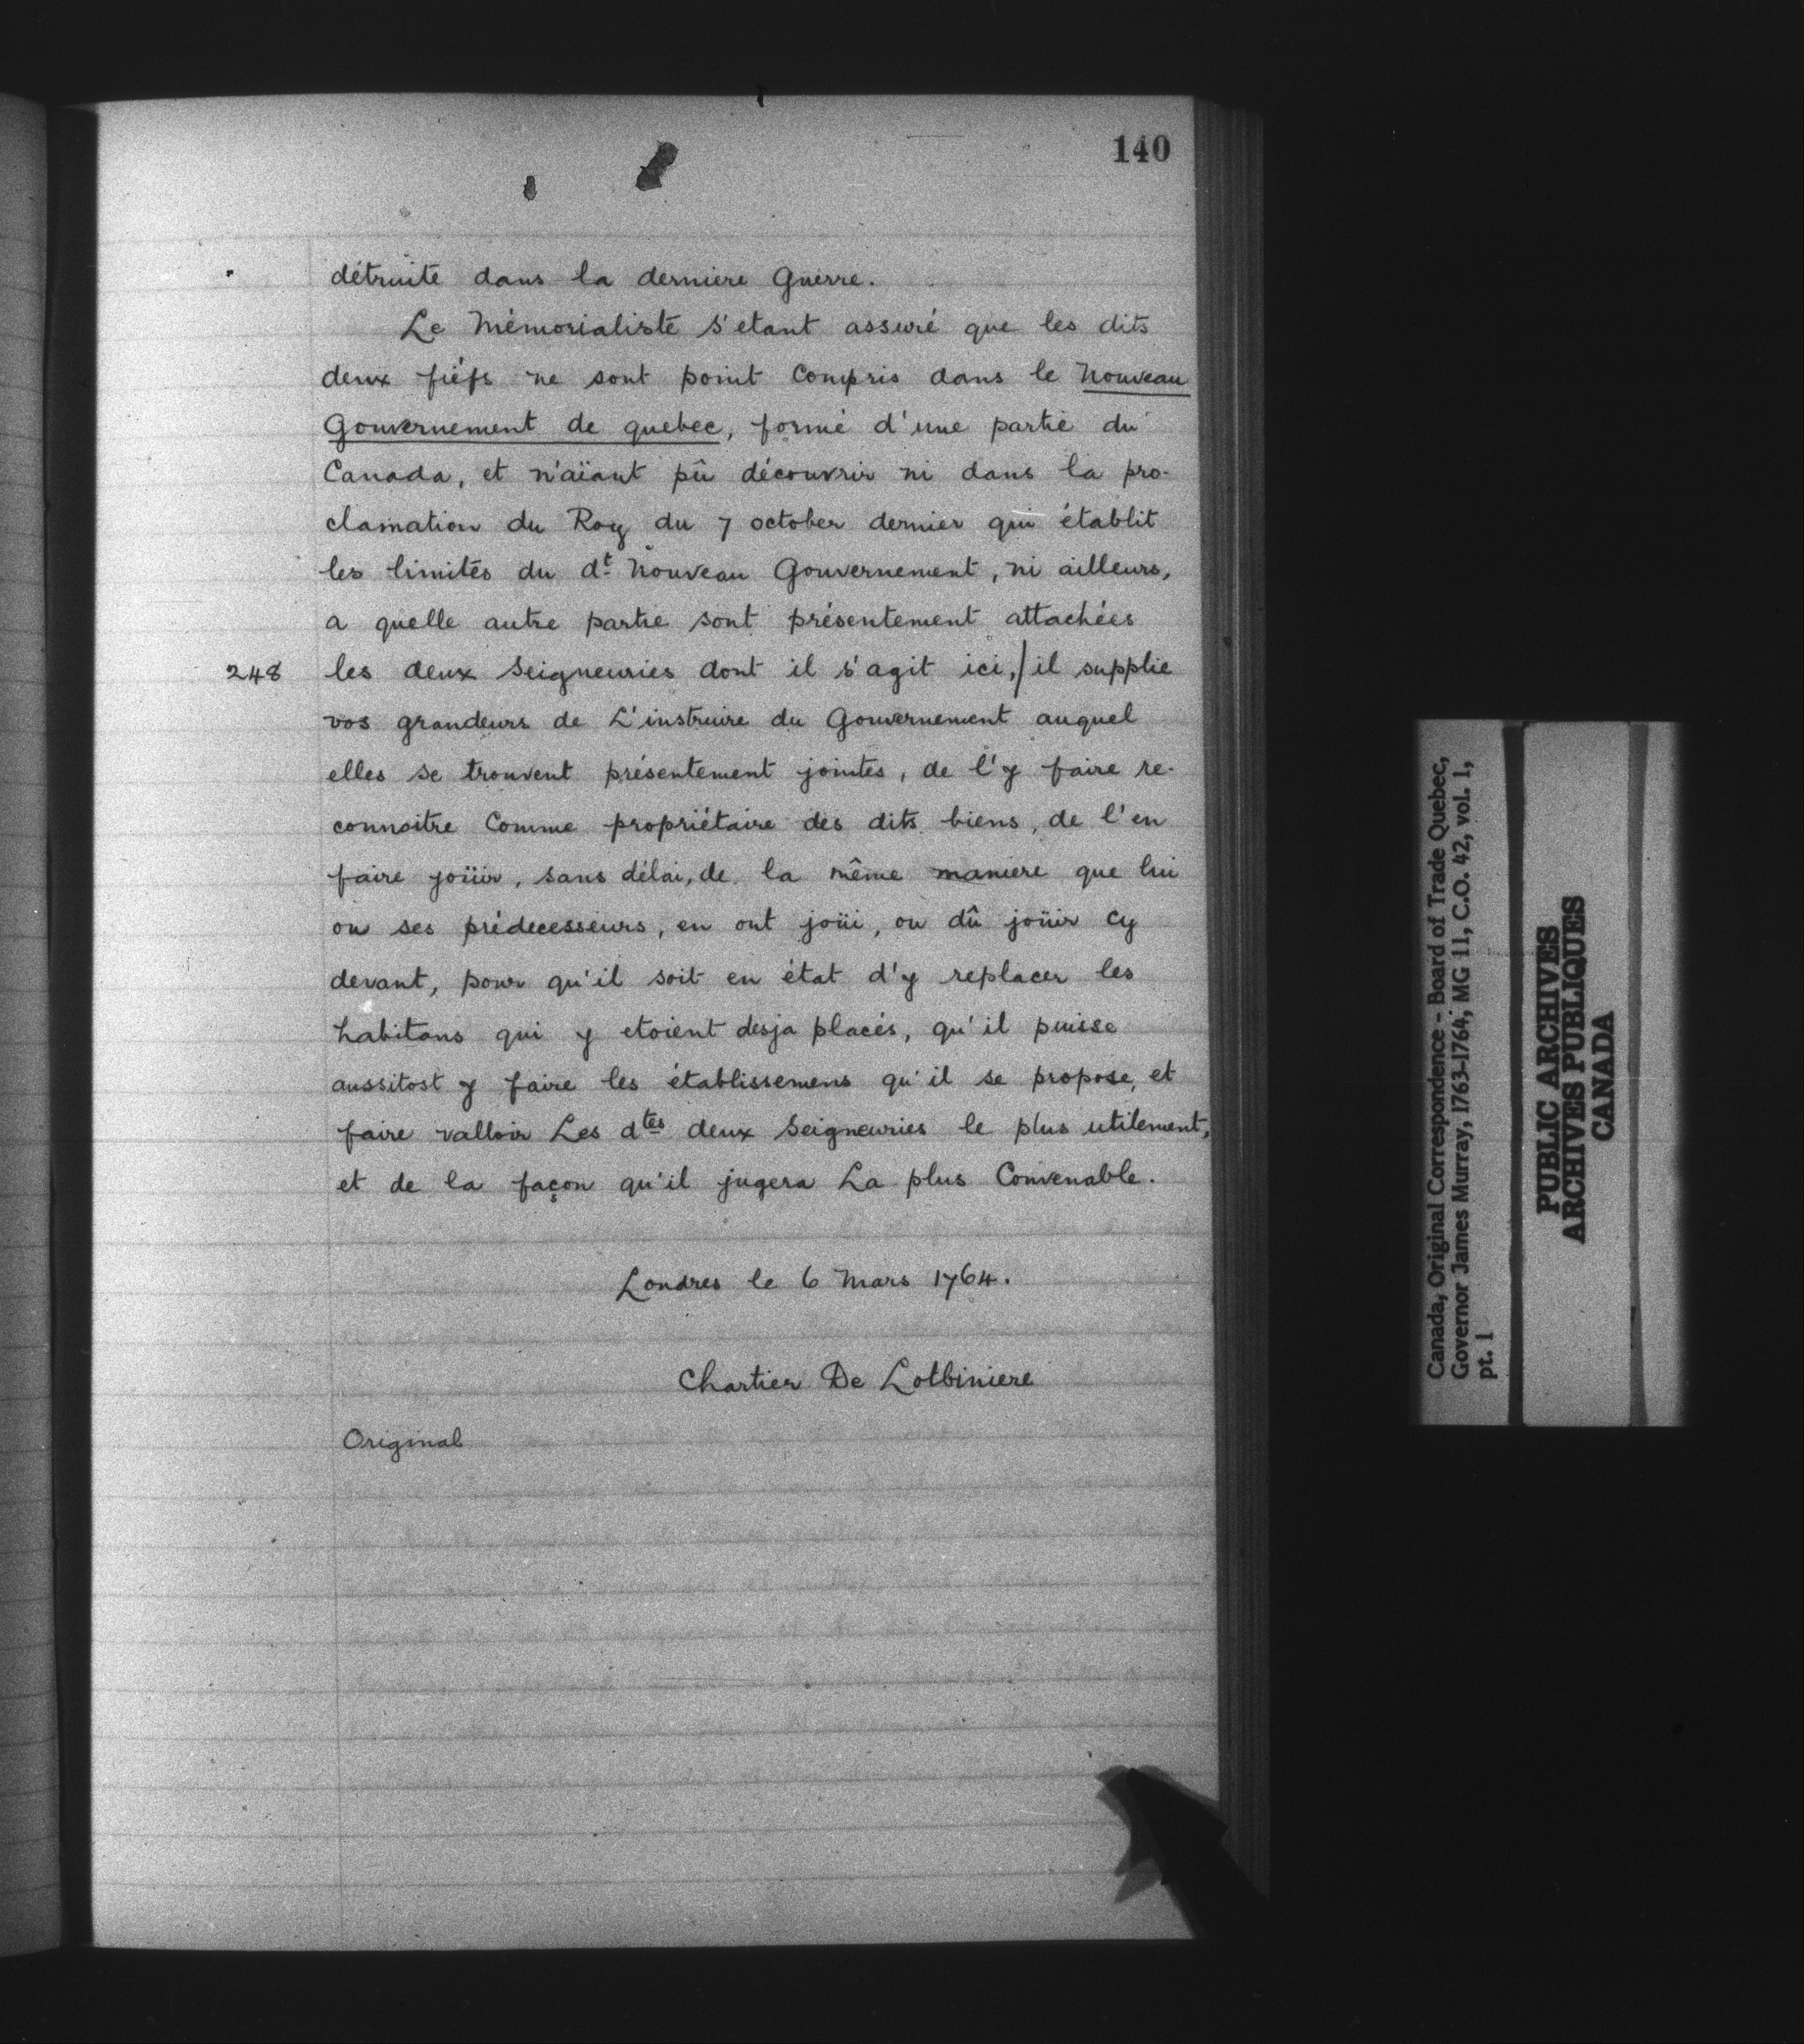 140
détruite dans la derniere Guerre.
Le Mémorialiste s'etant assuré que les dits
deux fiéfs ne sont point Compris dans le Nouveau
Gouvernement de quebec, formé d'une partie du
Canada, et n'aïant pû découvrir ni dans la pro-
clamation du Roy du 7 october dernier qui établit
les limites du dt Nouveau Gouvernement, ni ailleurs,
a quelle autre partie sont présentement attachées
248 les deux Seigneuries dont il s'agit ici,/il supplie
vos grandeurs de L'instruire du Gouvernement auquel
elles se trouvent présentement jointes, de l'y faire re-
connoitre Comme propriétaire des dits biens, de l'en
faire joüir, sans délai, de la même maniere que lui
ou ses prédecesseurs, en ont joüi, ou dû joüir cy
devant, pour qu'il soit en état d'y replacer les
habitans qui y etoient desja placés, qu'il puisse
aussitost y faire les établissemens qu'il se propose, et
faire valloir Les dtes deux Seigneuries le plus utilement,
et de la façon qu'il jugera La plus Convenable.
Londres le 6 Mars 1764.
Chartier De Lotbiniere
Original
Canada, Original Correspondence - Board of Trade Quebec,
Governor James Murray, 1763-1764, MG 11, C.O. 42, vol. 1,
pt. 1
PUBLIC ARCHIVES
ARCHIVES PUBLIQUES
CANADA